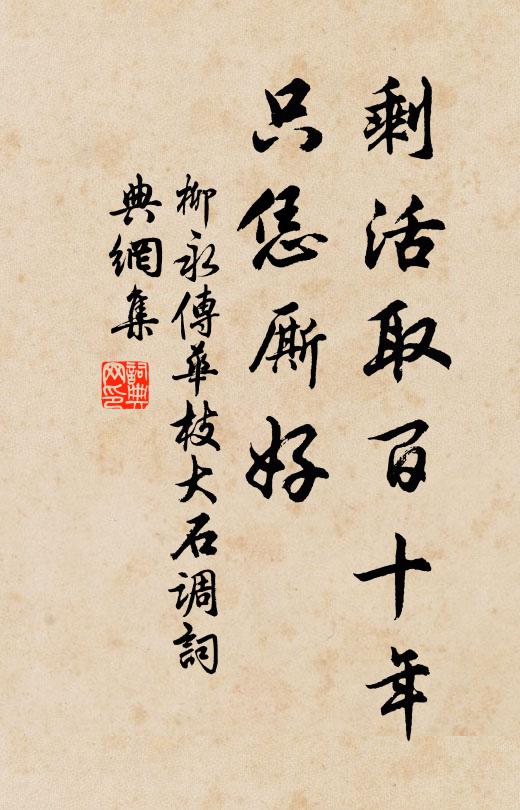 剩活取百十年
只恁厮好
柳永傳華枝大石调詞
典網集
詞典
网印